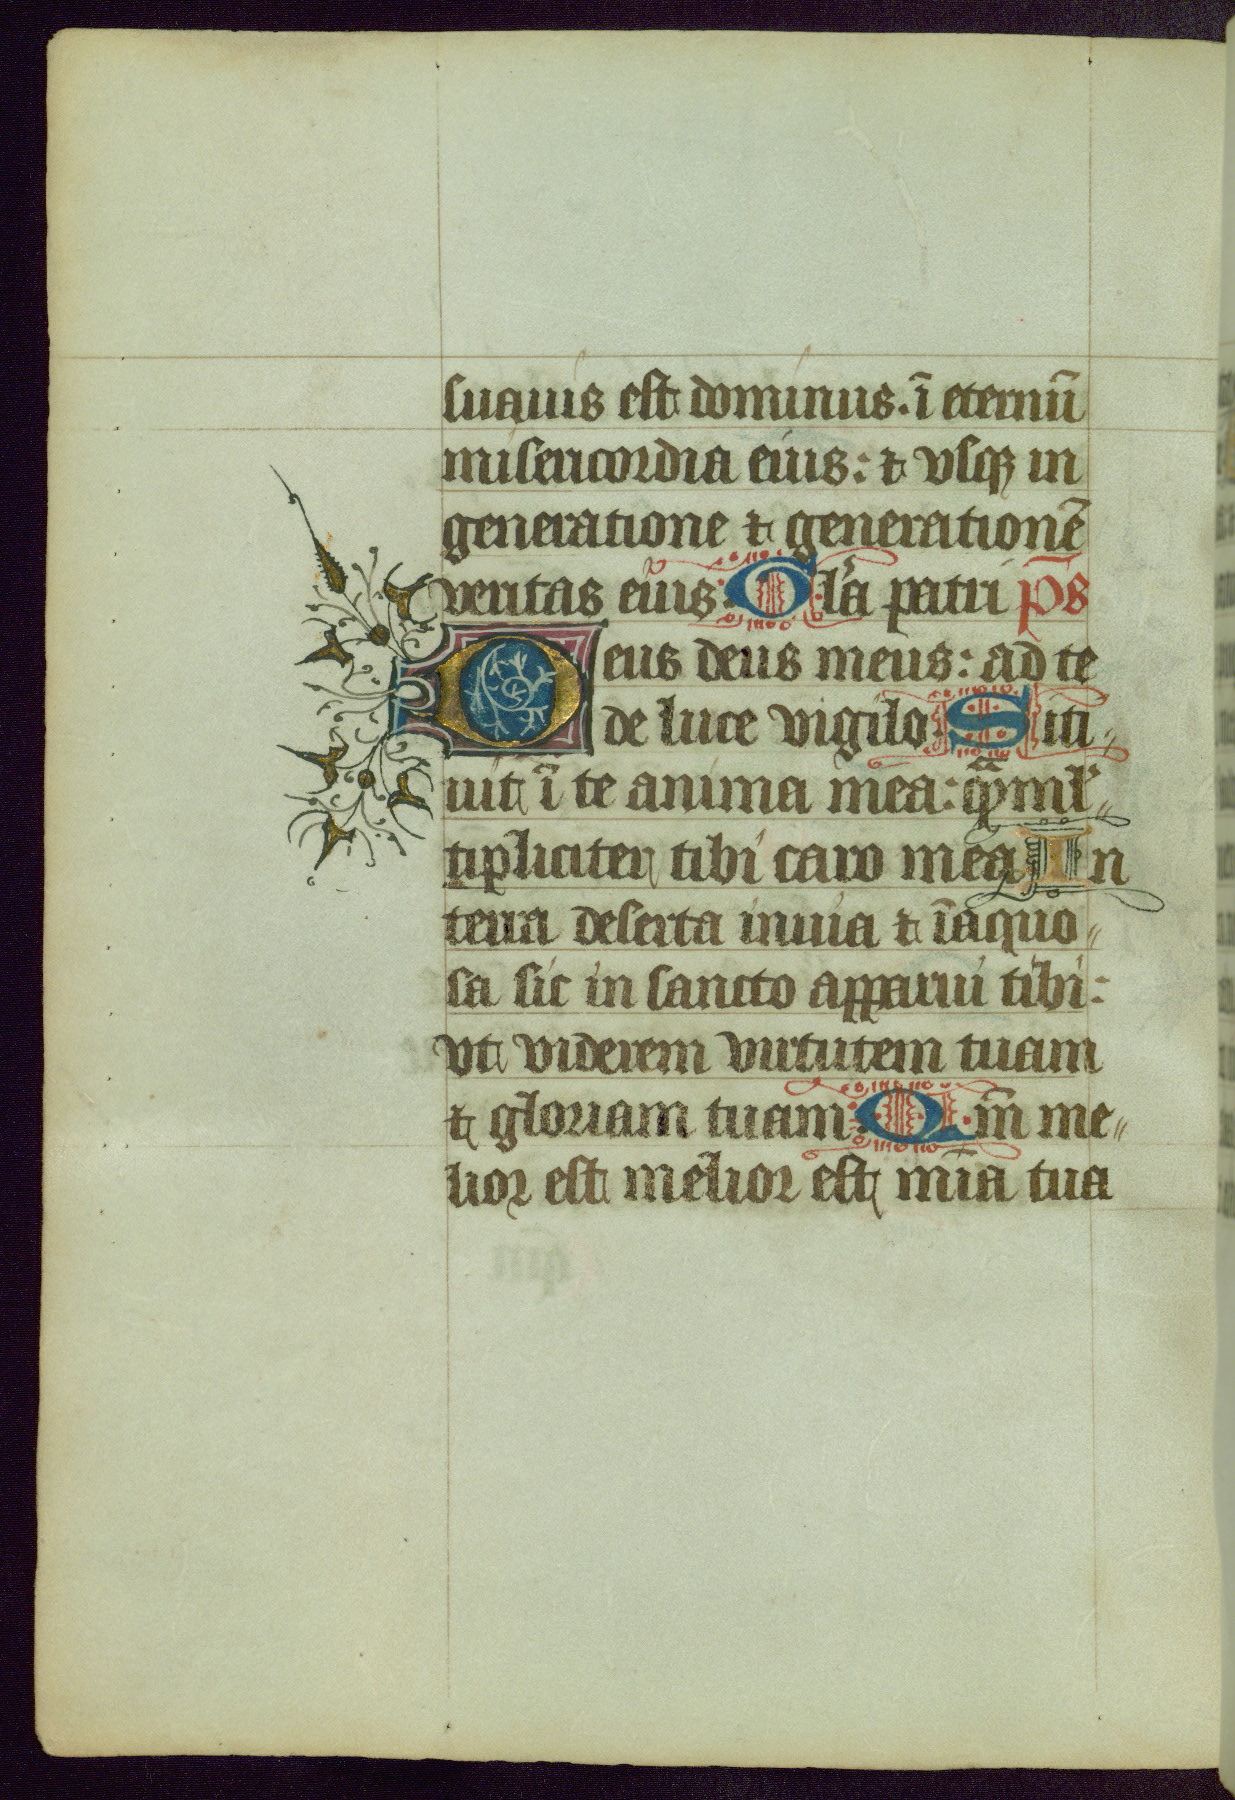 suauis est dominus. ī eternū
misericordia eius: ⁊ vsqꝫ in
generatione ⁊ generationē
veritas eius. Gl'a patri p̄s
Deus deus meus: ad te
de luce vigilo. Siti„
uit ī te anima mea: q̄ꝫ ml'„
tipliciter tibi caro mea In
terra deserta inuia ⁊ īaquo„
sa sic in sancto apparui tibi:
vt viderem virtutem tuam
⁊ gloriam tuam. Qm̄ me„
lior est melior est mīa tua